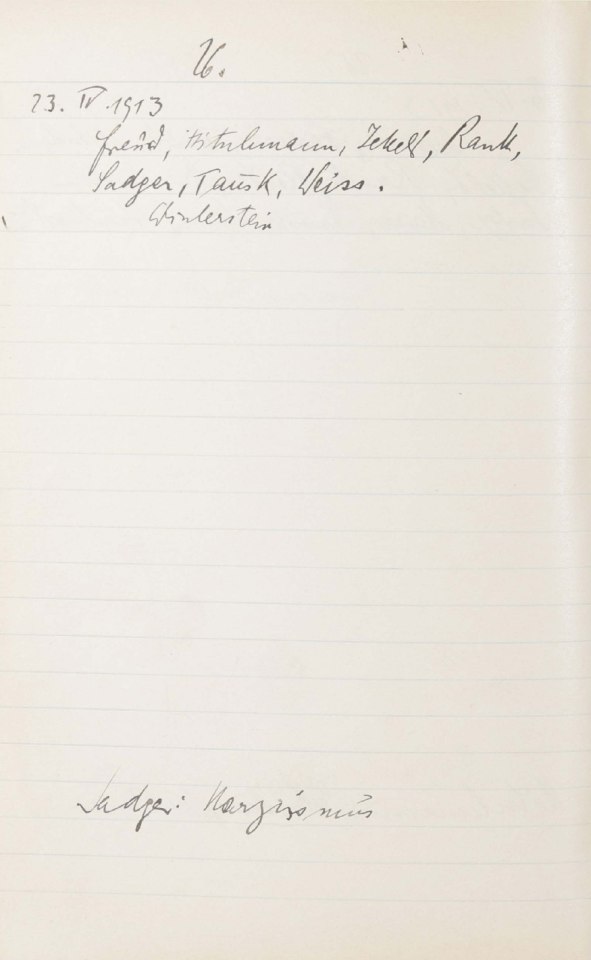 26.
23. IV. 1913
Freud, Hitschmann, Jekels, Rank,
Sadger, Tausk, Weiss.
Winterstein
Sadger: Narzissmus